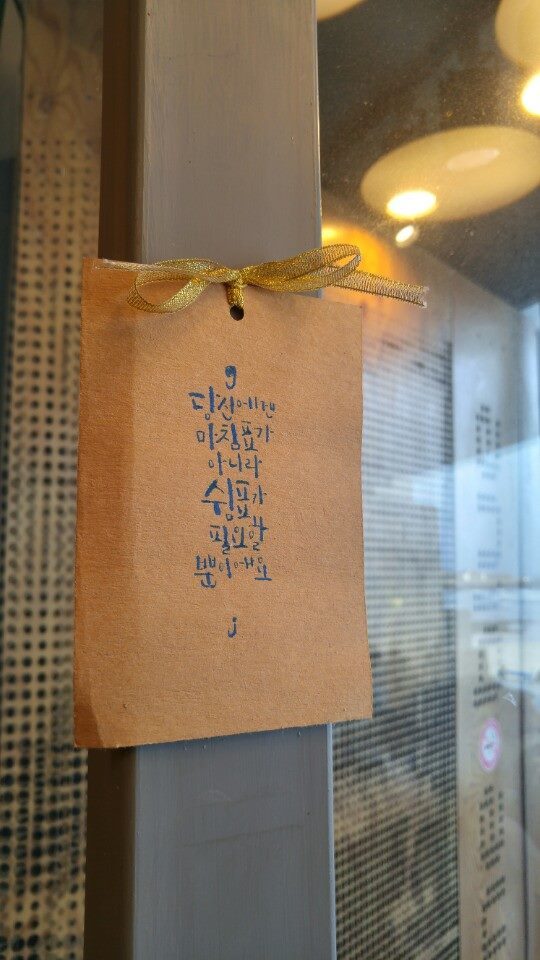 당신에겐
마침표가
아니라
쉼표가
필요할
뿐이에요